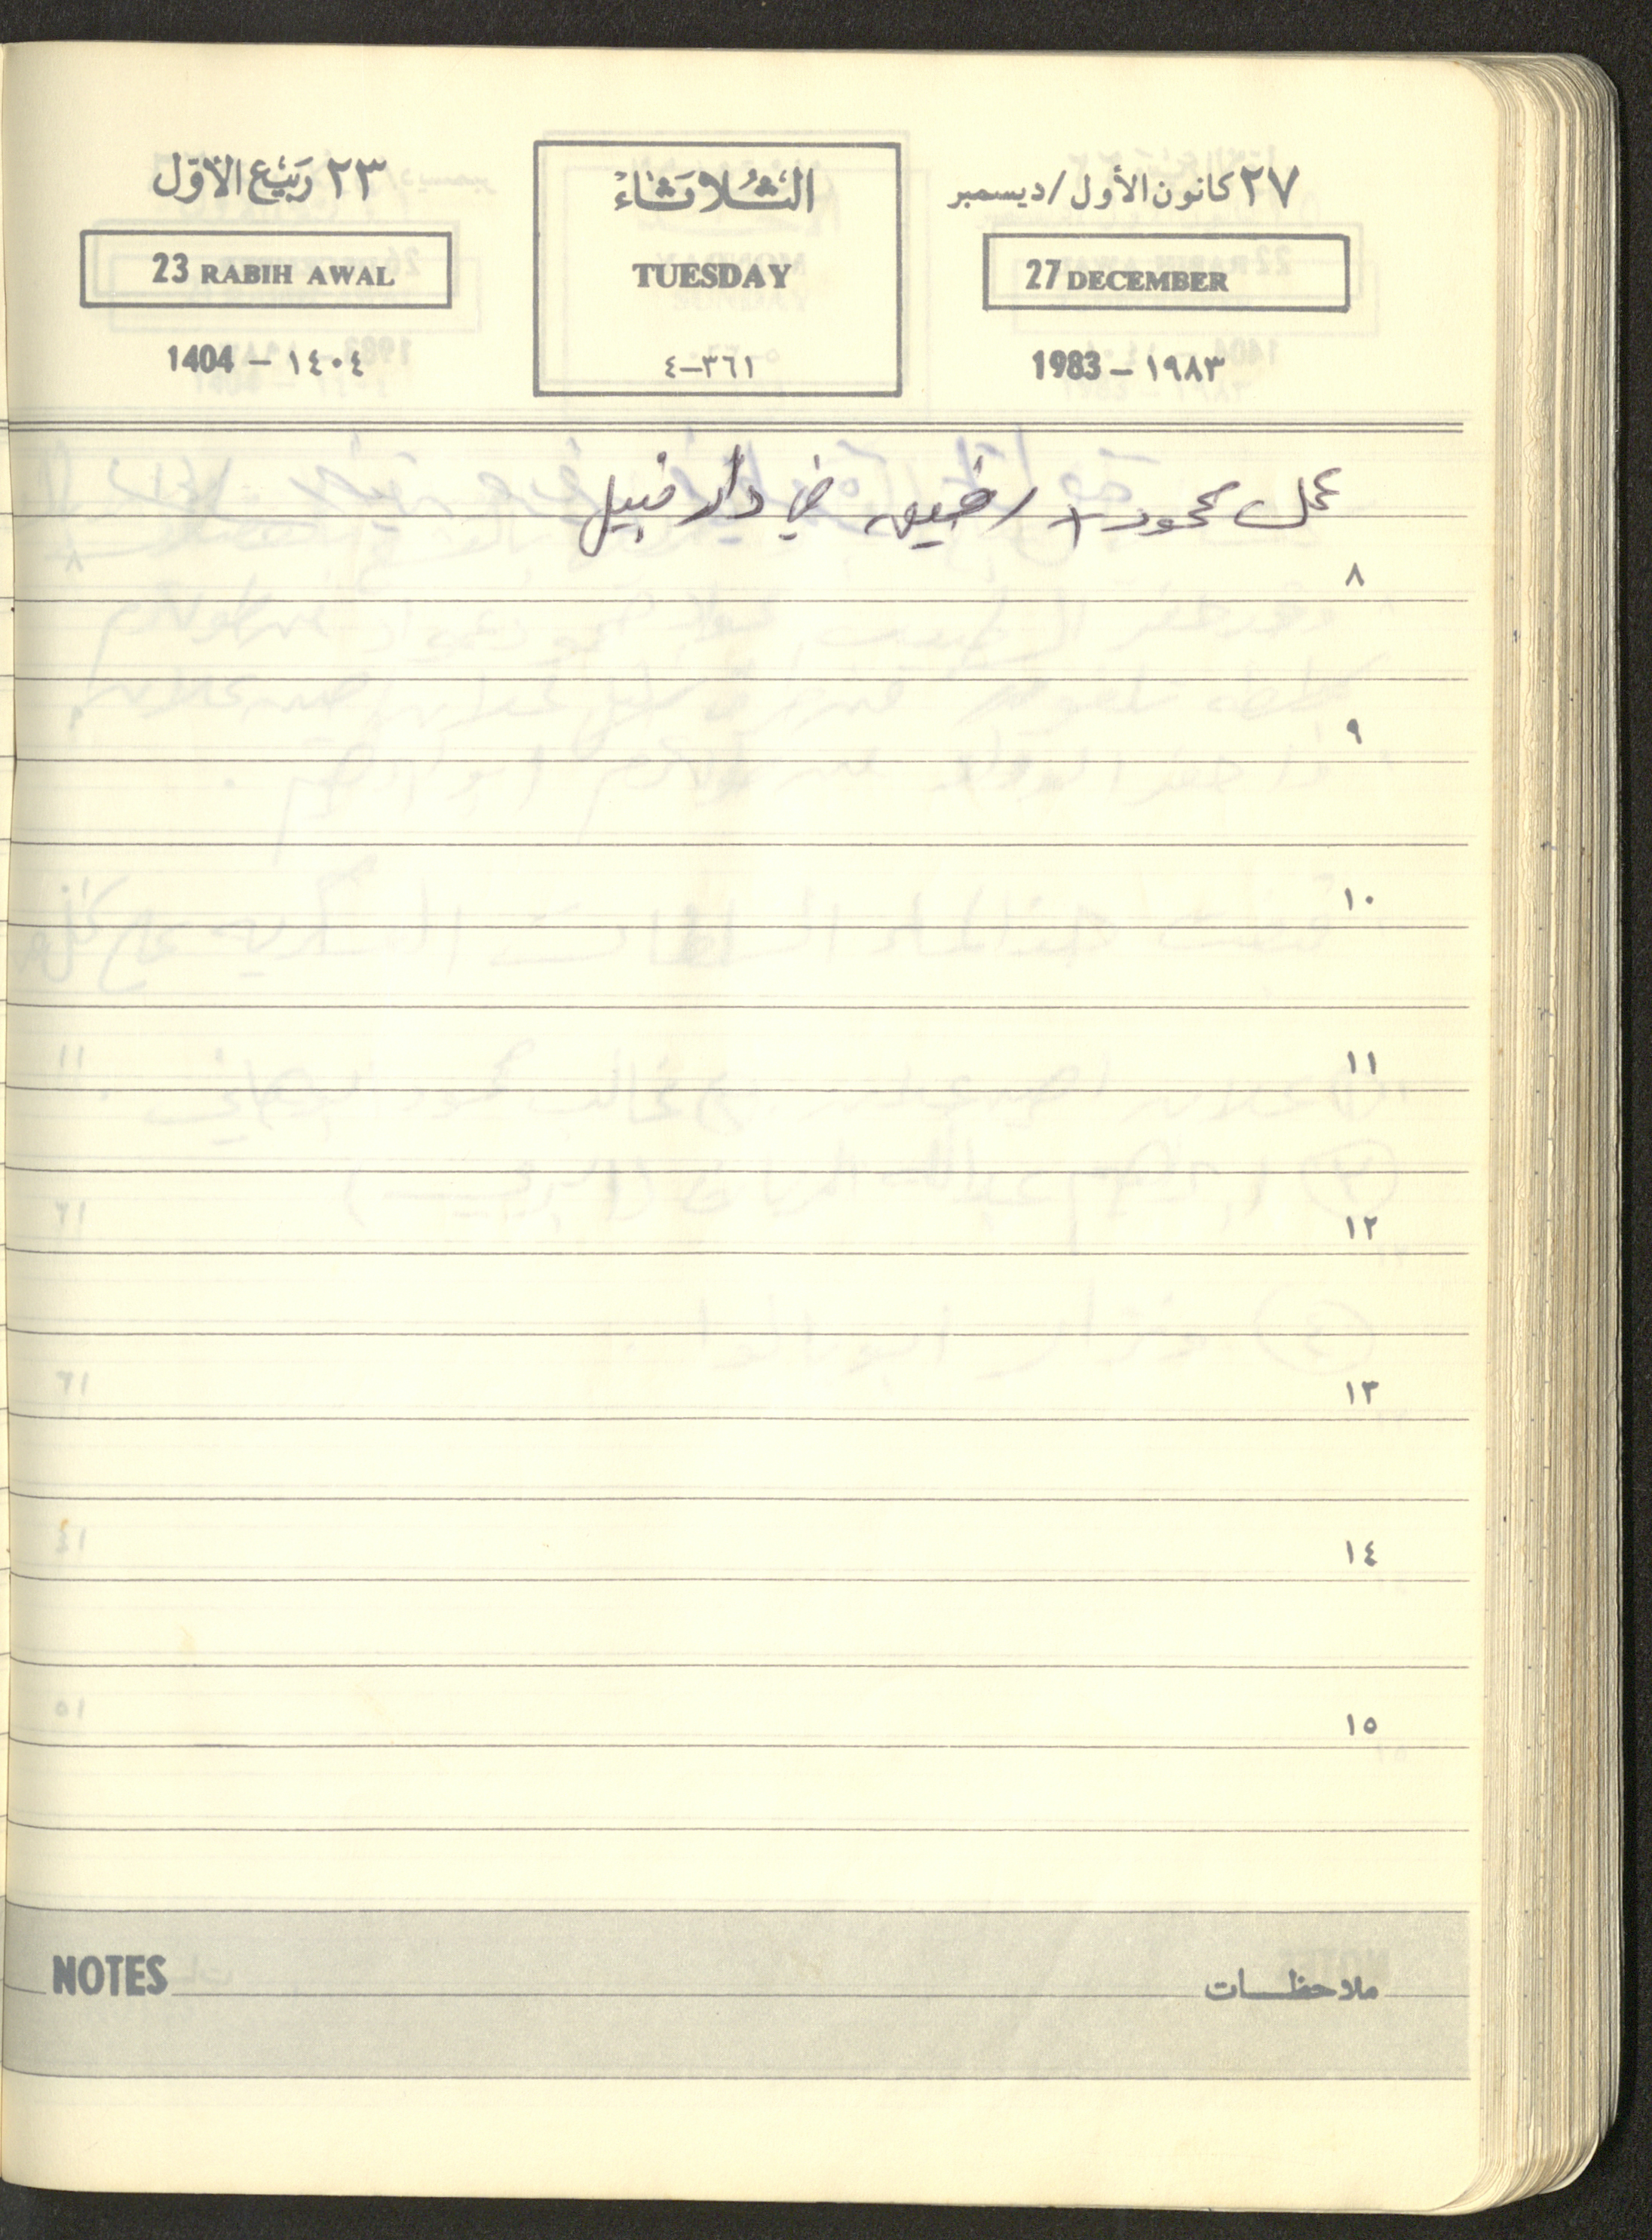 ٢٧ كانون الأول/ديسمبر
27 DECEMBER
1983 – ١٩٨٣
الثلاثاء
TUESDAY
٣٦١–٤
٢٣ ربيع الأوّل
23 RABIH AWAL
1404 – ١٤٠٤
عمل محمود + رفيق في دار نبيل
٨
٩
١٠
١١
١٢
١٣
١٤
١٥
ملاحظات NOTES